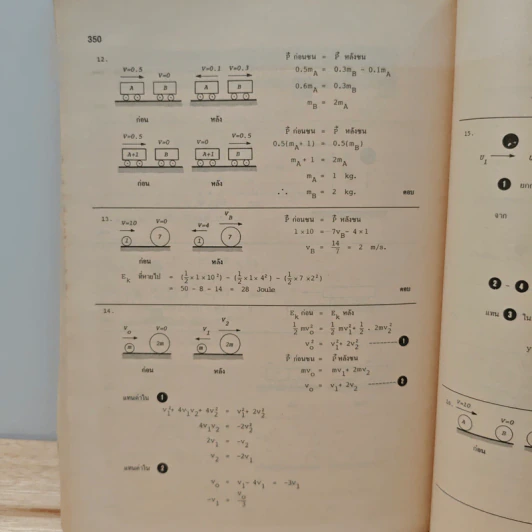 350
12.
V=0.5 V=0 V=0.1 V=0.3
A B A B
ก่อน หลัง
P ก่อนชน = P หลังชน
0.5mA = 0.3mB - 0.1mA
0.6mA = 0.3mB
mB = 2mA
V=0.5 V=0 V=0 V=0.5
A+1 B A+1 B
ก่อน หลัง
P ก่อนชน = P หลังชน
0.5(mA+ 1) = 0.5(mB)
mA + 1 = 2mA
mA = 1 kg.
∴ mB = 2 kg. ตอบ
13.
V=10 V=0 V=4 VB
1 7 1 7
ก่อน หลัง
P ก่อนชน = P หลังชน
1 x 10 = 7vB - 4 x 1
vB = 14/7 = 2 m/s.
Ek ที่หายไป = (1/2 x 1 x 10²) - (1/2 x 1 x 4²) - (1/2 x 7 x 2²)
= 50 - 8 - 14 = 28 Joule ตอบ
14.
Vo V=0 V1 V2
m 2m m 2m
ก่อน หลัง
Ek ก่อน = Ek หลัง
1/2 mvo² = 1/2 mv1² + 1/2 . 2mv2²
vo² = v1² + 2v2² 1
P ก่อนชน = P หลังชน
mvo = mv1 + 2mv2
vo = v1 + 2v2 2
แทนค่าใน 1
v1² + 4v1v2 + 4v2² = v1² + 2v2²
4v1v2 = -2v2²
2v1 = -v2
v2 = -2v1
แทนค่าใน 2
vo = v1 - 4v1 = -3v1
-v1 = vo/3
15.
v1
1
จาก
2 - 4
แทน 3 ใน
16.
V=10 V=0
A B
ก่อน